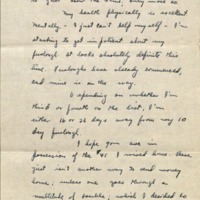 is
my health physically is excellent
mentally - I just can't help myself - I'm
starting to get in patient about my
furlough. It looks absolutely definite this
time. Furloughs have already commenced,
and mine is on the way.
Depending on whether I'm
third or fourth on the list, I'm
either 16 or 26 days away from my 10
day furlough.
I hope you are in
possession of the $45 I wired home. There
just isn't another way to send money
home, unless one goes through a
multitude of trouble, which I decided to